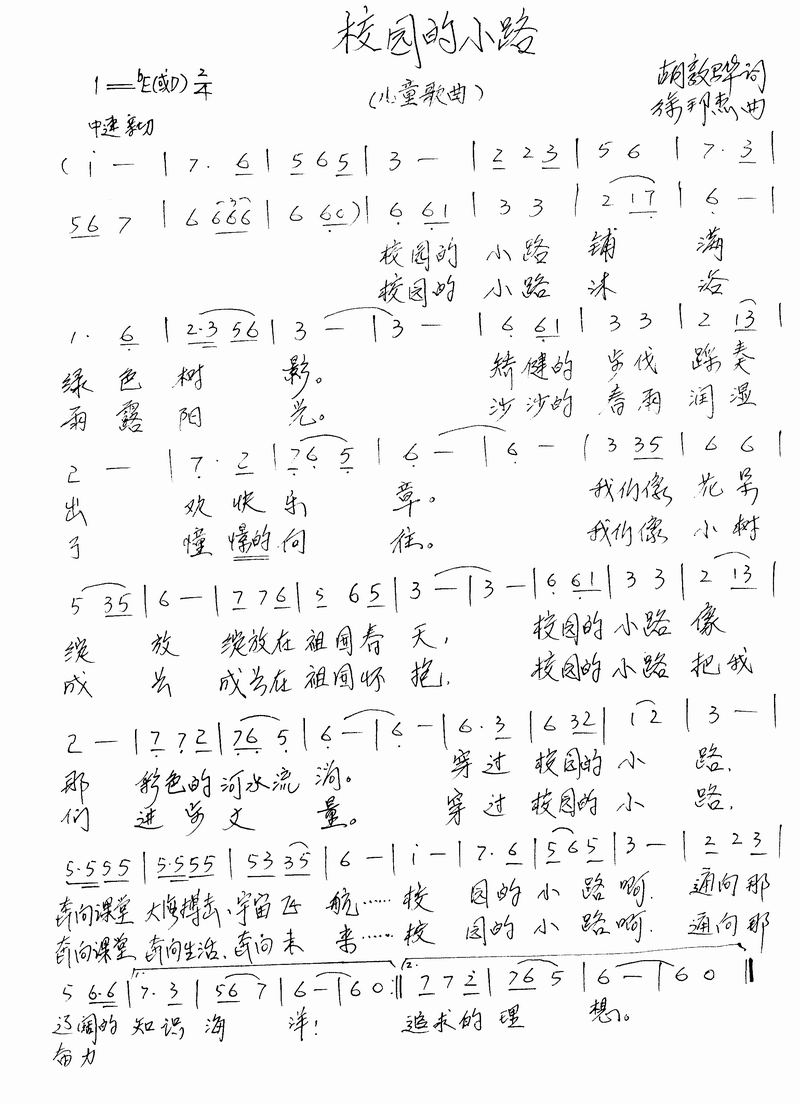 校园的小路
1=♭E(或D) 2/4
(儿童歌曲)
胡敦骅词
徐邦杰曲
中速 亲切
( i — | 7. 6 | 5 6 5 | 3 — | 2 2 3 | 5 6 | 7. 3 |
5 6 7 | 6 6 6 6 | 6 6 0 ) | 6 6 1 | 3 3 | 2 1 7 | 6 — |
校园的 小路 铺 满
校园的 小路 沐 浴
1. 6 | 2.3 5 6 | 3 — | 3 — | 6 6 1 | 3 3 | 2 1 3 |
绿色树 影。 矫健的 步伐 踩奏
雨露阳 光。 沙沙的 春雨 润湿
2 — | 7. 2 | 7 6 5 | 6 — | 6 — | 3 3 5 | 6 6 |
出 欢快乐 章。 我们像 花朵
了 憧憬的向 往。 我们像 小树
5 3 5 | 6 — | 7 7 6 | 5 6 5 | 3 — | 3 — | 6 6 1 | 3 3 | 2 1 3 |
绽 放 绽放在祖国春 天, 校园的 小路 像
成 长 成长在祖国怀 抱, 校园的 小路 把我
2 — | 7 7 2 | 7 6 5 | 6 — | 6 — | 6. 3 | 6 3 2 | 1 2 | 3 — |
那 彩色的河水流 淌。 穿过 校园的 小 路,
们 进步丈 量。 穿过 校园的 小 路,
5.5 5 5 | 5.5 5 5 | 5 3 3 5 | 6 — | i — | 7. 6 | 5 6 5 | 3 — | 2 2 3 |
奔向课堂 大海搏击、宇宙飞 航······校 园的小路啊. 通向那
奔向课堂 奔向生活、奔向未 来······校 园的小路啊. 通向那
1. 2.
5 6.6 | 7. 3 | 5 6 7 | 6 — | 6 0 :|| 7 7 2 | 7 6 5 | 6 — | 6 0 ||
辽阔的知识海 洋! 追求的理 想。
奋力